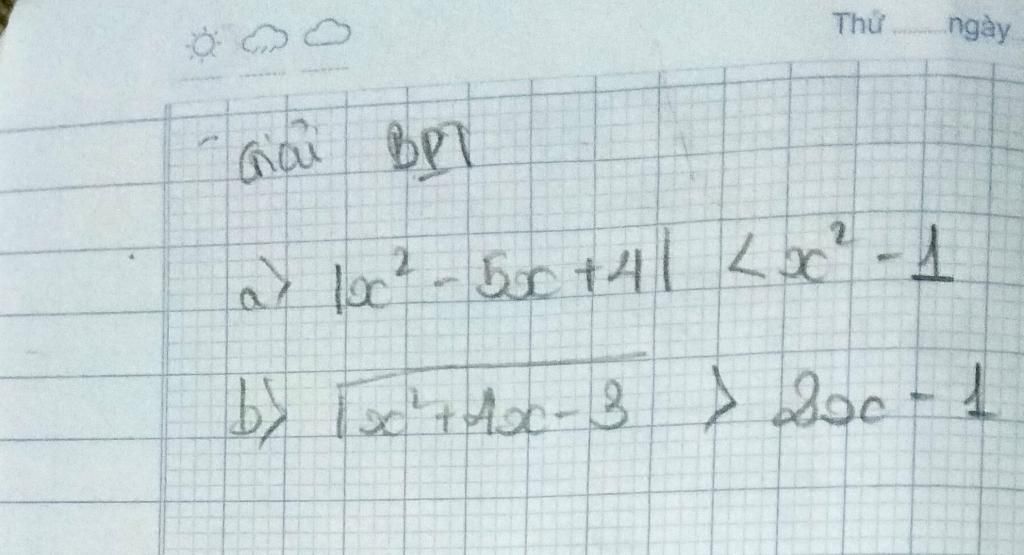 Thứ ........ ngày
- Giải BPT
a) |x² - 5x + 4| < x² - 1
b) √x² + 4x - 3 > 2x - 1